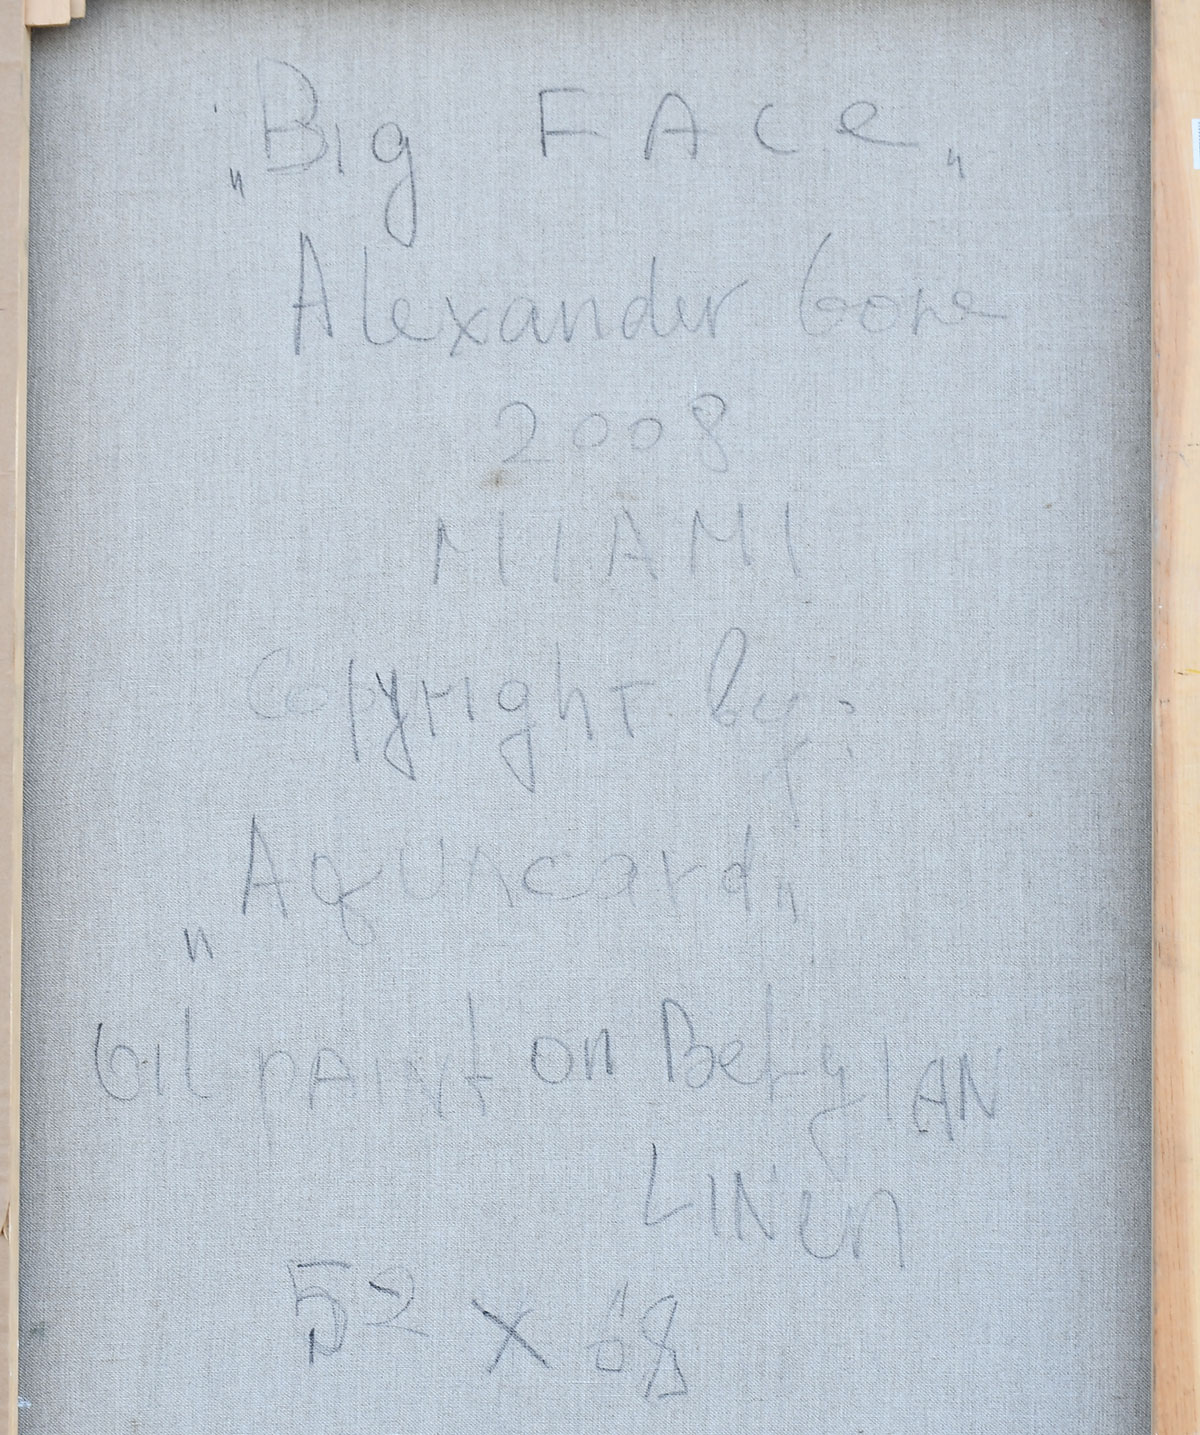 „Big FAce„
Alexander Gore
2008
MIAMI
CopyrighT by:
„Aquncard„
Oil pAint on BelgIAN
LINen
52 x 68